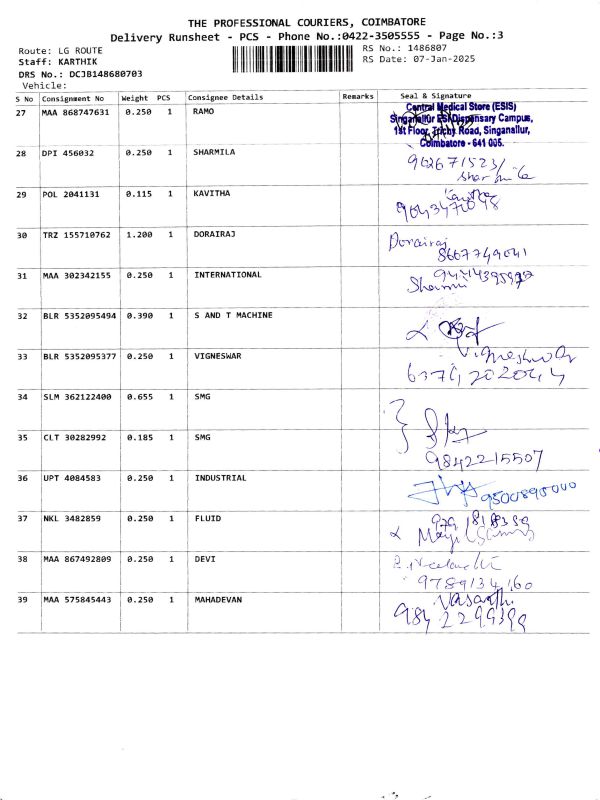 THE PROFESSIONAL COURIERS, COIMBATORE
Delivery Runsheet - PCS - Phone No.:0422-3505555 - Page No.:3
Route: LG ROUTE
RS No.: 1486807
Staff: KARTHIK
RS Date: 07-Jan-2025
DRS No.: DCJB148680703
Vehicle:
S No Consignment No Weight PCS Consignee Details Remarks Seal & Signature
27 MAA 868747631 0.250 1 RAMO
Central Medical Store (ESIS)
Singanallur ESI Dispensary Campus,
1st Floor, Trichy Road, Singanallur,
Coimbatore - 641 005.
28 DPI 456032 0.250 1 SHARMILA
Sharmila
29 POL 2041131 0.115 1 KAVITHA
Kavitha
30 TRZ 155710762 1.200 1 DORAIRAJ
Dorairaj
8667749041
31 MAA 302342155 0.250 1 INTERNATIONAL
32 BLR 5352095494 0.390 1 S AND T MACHINE
33 BLR 5352095377 0.250 1 VIGNESWAR
Vigneshwar
34 SLM 362122400 0.655 1 SMG
35 CLT 30282992 0.185 1 SMG
9842215507
36 UPT 4084583 0.250 1 INDUSTRIAL
9500890000
37 NKL 3482859 0.250 1 FLUID
38 MAA 867492809 0.250 1 DEVI
9789134160
39 MAA 575845443 0.250 1 MAHADEVAN
Vasanth
984 2299399